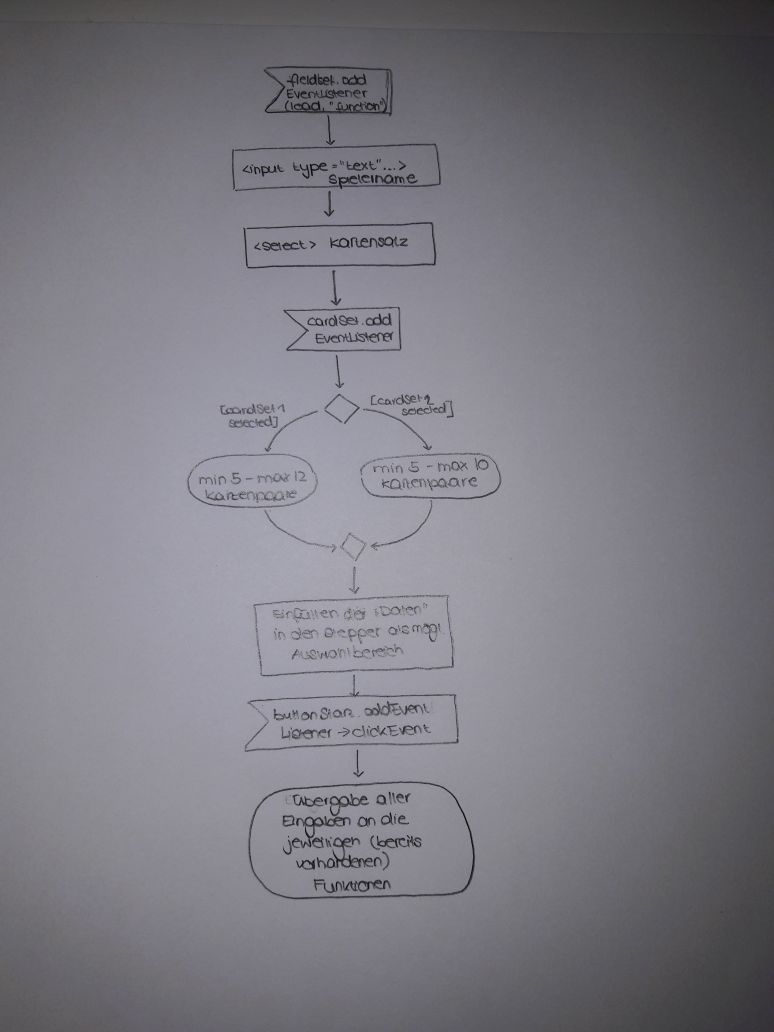 fieldset.add
EventListener
(load, "function")
<input type="text"...>
Spielername
<select> Kartensatz
cardSet.add
EventListener
[cardSet1
selected]
[cardSet2
selected]
min 5 - max 12
Kartenpaare
min 5 - max 10
Kartenpaare
Einfüllen der "Daten"
in den Stepper als mögl.
Auswahlbereich
buttonStart.addEvent
Listener -> clickEvent
Übergabe aller
Eingaben an die
jeweiligen (bereits
vorhandenen)
Funktionen